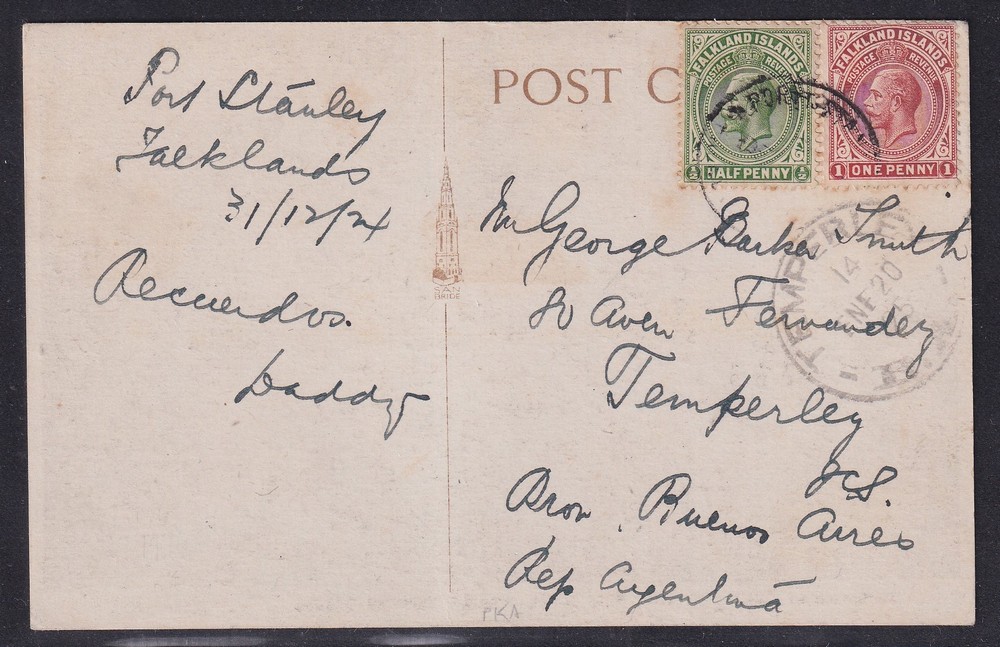 Port Stanley
Falklands
31/12/24
Recuerdos.
Daddy
SAN
BRIDE
POST C
FALKLAND ISLANDS
POSTAGE REVENUE
½ HALF PENNY ½
FALKLAND ISLANDS
POSTAGE REVENUE
1 ONE PENNY 1
TEMPERLEY
14
ENE 20
Mr George Parker Smith
Aven Fernandez
Temperley
FCS.
Prov. Buenos Aires
Rep Argentina
PKA